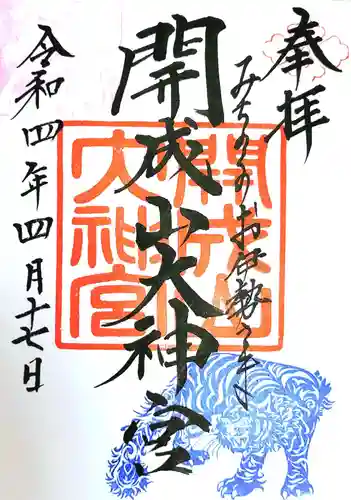 奉拝
みちのくのお伊勢さま
開成山大神宮
開成山
大神宮
令和四年四月十七日